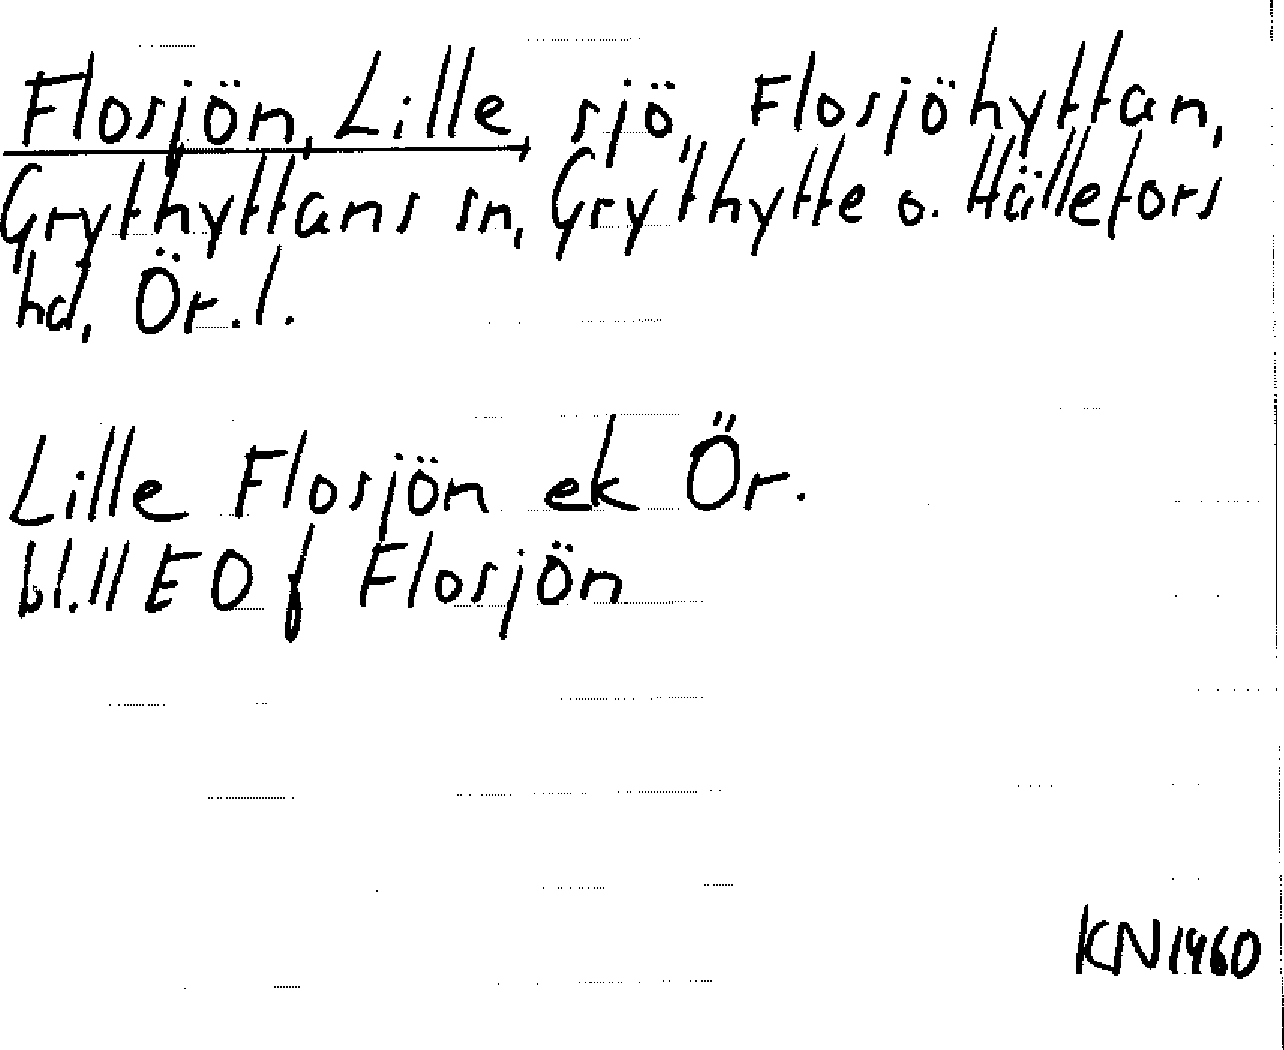 Flosjön, Lille, sjö, Flosjöhyttan,
Grythyttans sn, Grythytte o. Hällefors
hd, Ör. l.
Lille Flosjön ek Ör.
bl. 11 EO f Flosjön
KN 1960